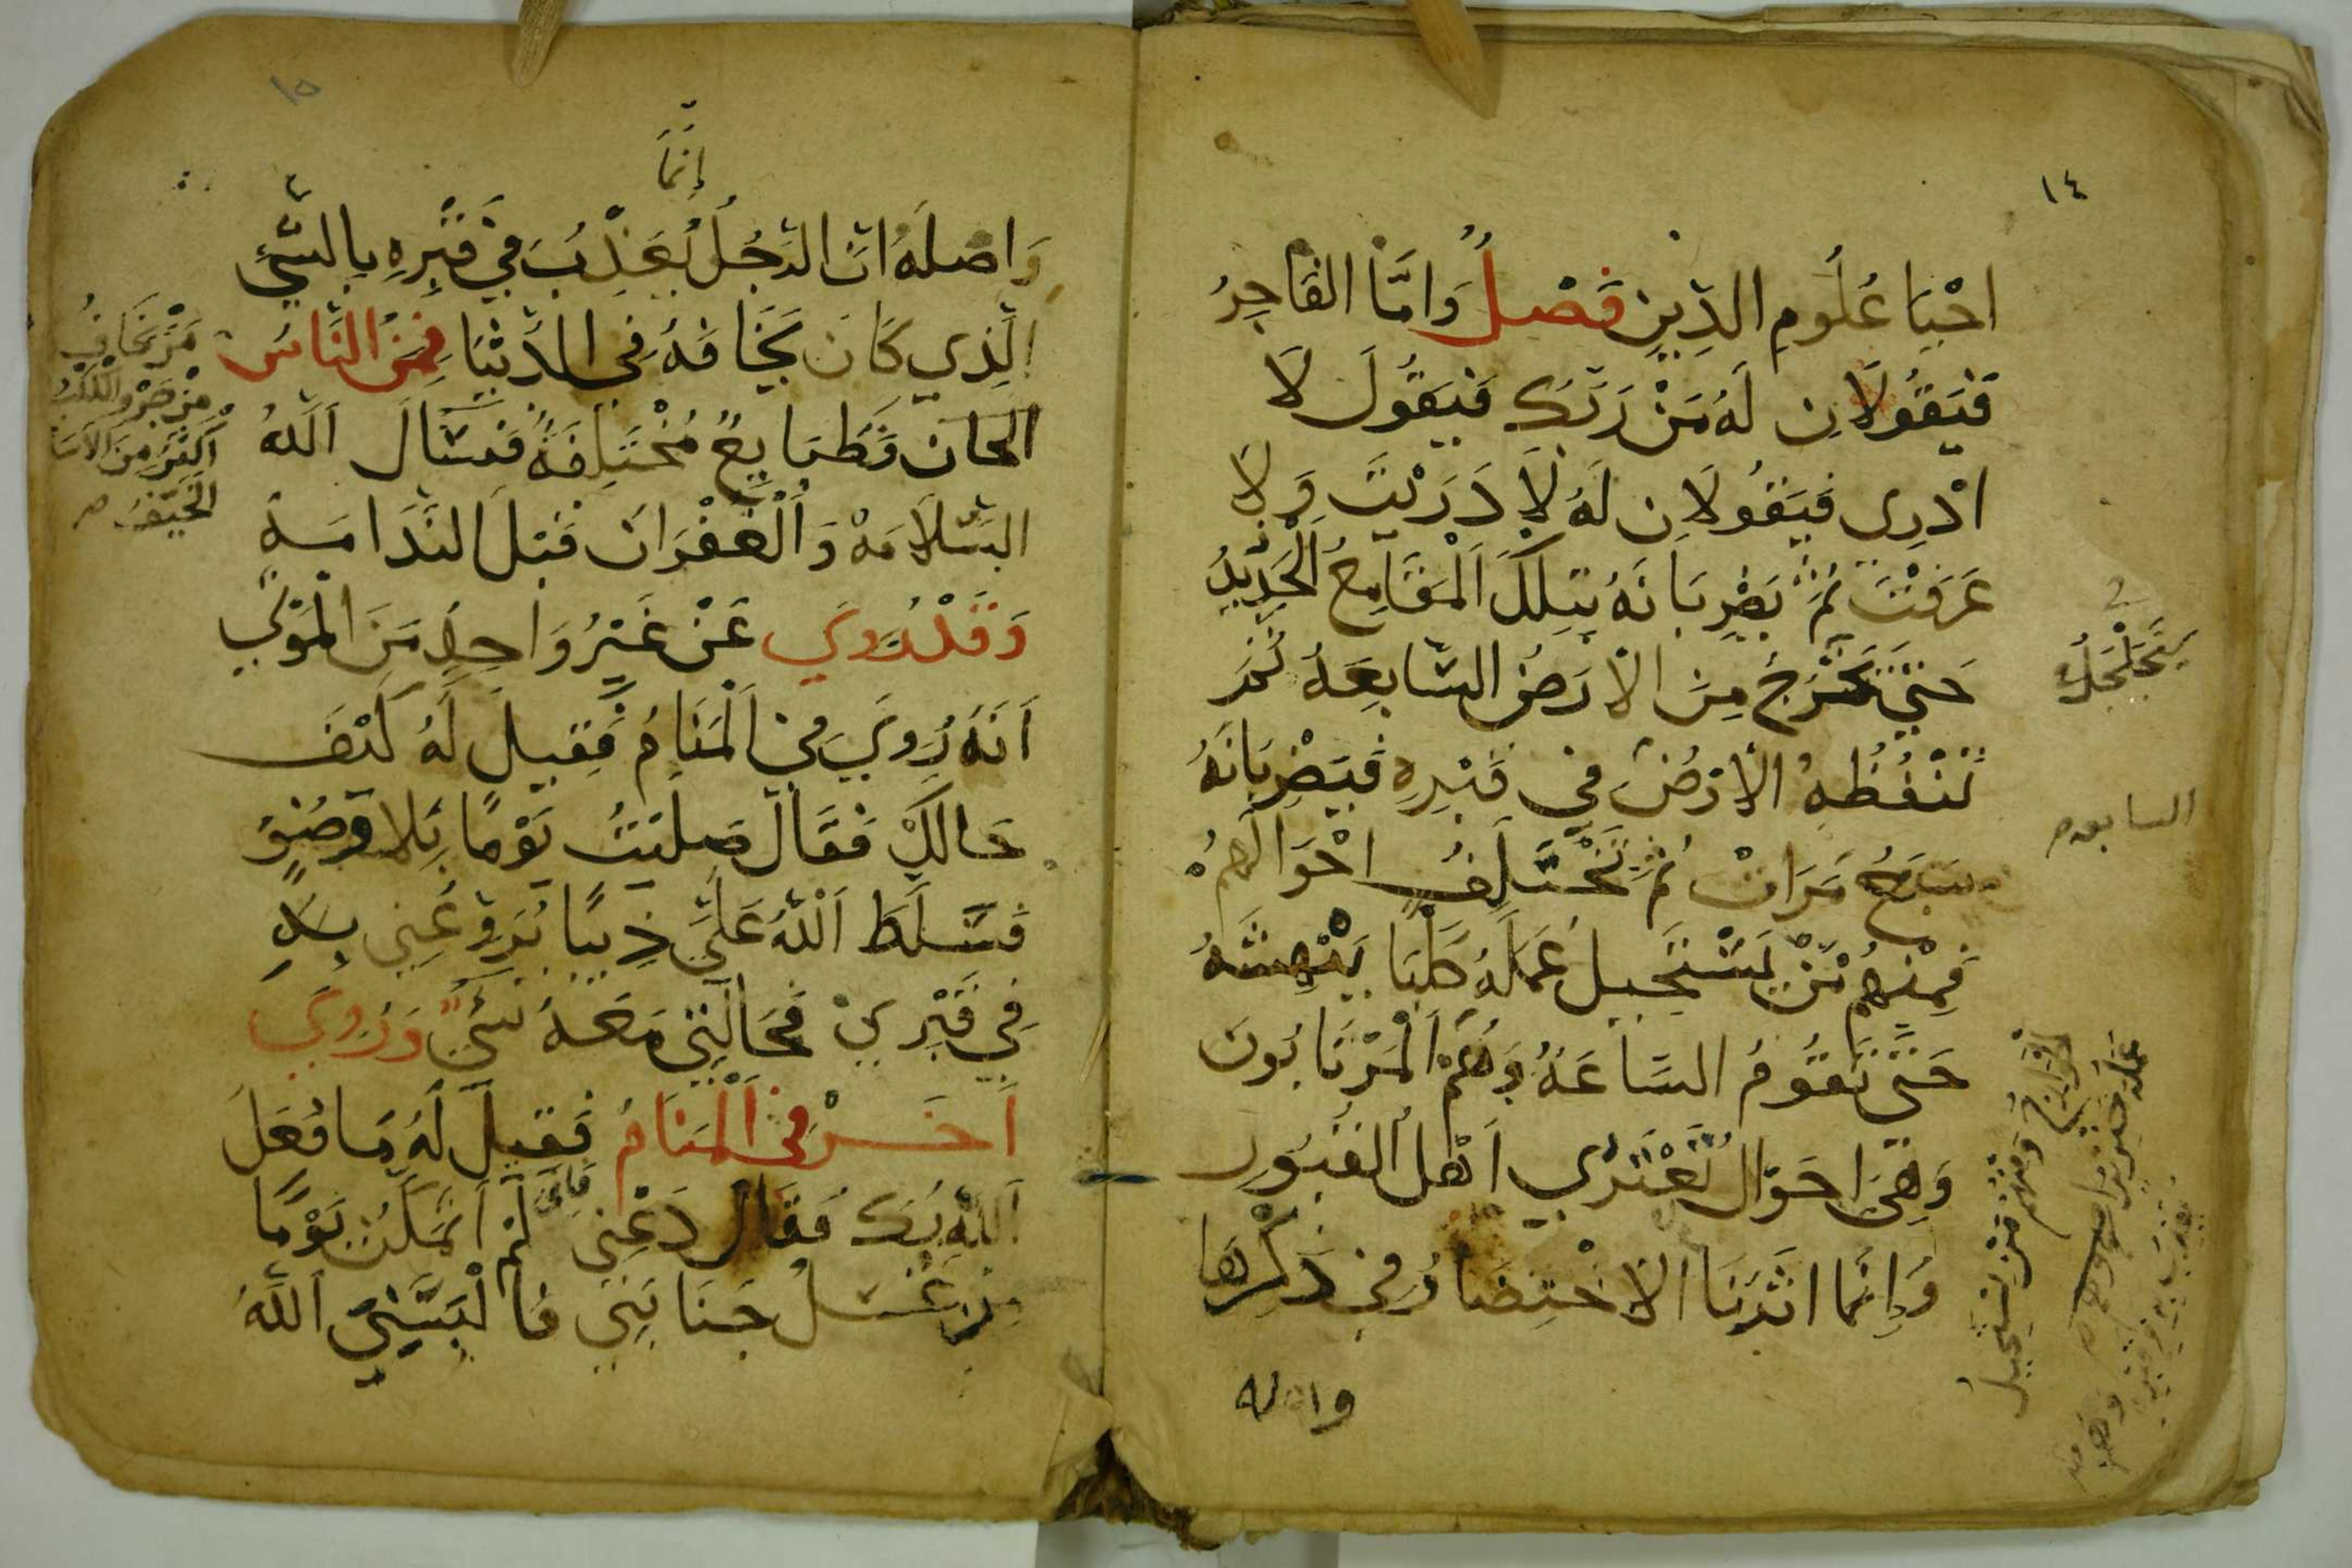 ١٤
احْيَا عُلُومِ الدِّينِ فَصْلٌ وَامَّا الفَاجِرُ
فَيَقُولَانِ لَهُ مَنْ رَبَّكَ فَيَقُولَ لَا
ادْرِي فَيَقُولَانِ لَهُ لَا دَرَيْتَ وَلا
عَرَفْتَ ثُمَّ يَضْرِبَانَهُ بِتِلكَ الْمَقَامِعُ الْحَدِيدُ
حَتَّي يَخْرُجُ مِنَ الْارَضُ السَّابِعَهُ ثُمَّ
تَنْفُظُهُ الْارْضُ فِي قَبْرِهِ فَيَضْرِبَانَهُ
سَبعُ مَرَاتْ ثُمَّ تَخْتَلِفُ احْوَالَهُمْ
فَمِنْهُمْ مَنْ يَسْتَحِيلُ عَمَلَهُ كَلْبًا يَنْهِشَهُ
حَتَّي تَقُومُ السَّاعَهُ وَهُمْ الْمَرْتَابُونَ
وَهِيَ احَوَال تَعْتَرْي اَهْل القُبُور
وَاِنَّمَا اثَرْنَا الاخْتِصَارُ فِي ذِكْرِهَا
يَتَجَلْجَلُ
السابعه
الخوارج ومنهم من يستحيل
عمله خنزيرا
واصله
١٥
اِنَّمَا
وَاصلَهُ اَنَّ الرَّجُلُ يُعَذِّبُ فِي قَبْرِهِ بِالشَّيِ
الَّذِي كَانَ يَخَافَهُ فِي الدُّنْيَا فَمِنَ النَّاسِ
الحان فَطَبَايِعُ مُخْتَلِفَةُ فَنَسْأَلَ اَللهُ
السَّلَامَهْ وَالْغُفْرَان قَبْلَ النَّدَامَهْ
وَقَدْ رُوِيَ عَنْ غَيْرُ وَاحِدٍ مَنَ الْمَوْتَي
اَنَهُ رُوِيَ فِي الْمَنَامُ فَقِيلَ لَهُ كَيْفَ
حَالَكْ فَقَالَ صَلَيْتُ يَوْمًا بِلا وَضُوٍ
فَسَّلَطَ اَللهُ عَلَيَّ ذِيبًا يُرَوِّعُنِي بِهِ
فِي قَبْرِي فَحَالَتِي مَعَهُ شَيْ وَرُوِيَ
اَخَرْ فِي الْمَنَامُ فَقِيلَ لَهُ مَا فُعَلَ
اَللهِ بُكَ فَقَال دَعْنِي فَاِنِّي لَمْ اتمَكَنْ يَوْمًا
مِنْ غُسْلُ جَنَابَتِي فَالْبَسَّنِي اَللَّهُ
مَنْ يَخَافُ
مِنْ جَرْوِ الْكَلْبِ
اَكْثَرَ مِنَ الاَسَدِ